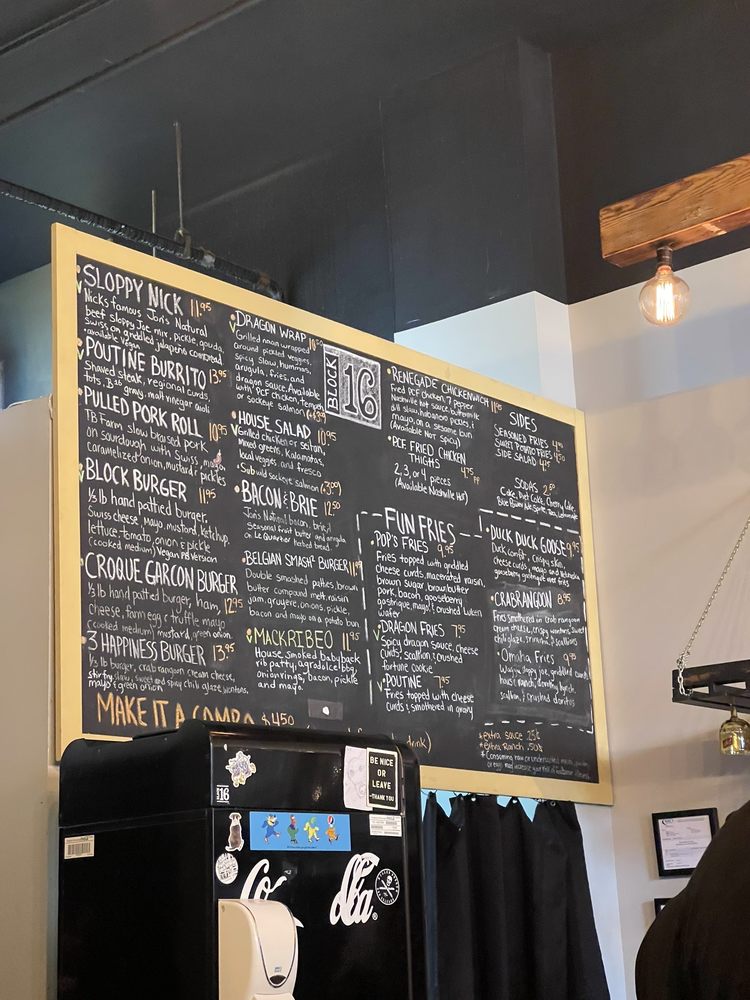 SLOPPY NICK 11.95
Nick's famous Jon's Natural
beef sloppy Joe mix, pickle, gouda
Swiss on griddled jalapeño cornbread
*available vegan
POUTINE BURRITO 13.95
Shaved steak, regional curds,
tots, B16 gravy, malt vinegar aioli
PULLED PORK ROLL 10.95
TB Farm slow braised pork
on sourdough with Swiss, mayo,
caramelized onion, mustard & pickles
BLOCK BURGER 11.95
1/3 lb hand pattied burger,
Swiss cheese, mayo, mustard, ketchup,
lettuce, tomato, onion & pickle
(cooked medium) Vegan PB version
CROQUE GARCON BURGER
1/3 lb hand pattied burger, ham, 12.95
cheese, farm egg & truffle mayo
(cooked medium) mustard, green onion
3 HAPPINESS BURGER 13.95
1/3 lb burger, crab rangoon cream cheese,
stir fry slaw, sweet and spicy chili glaze, wontons,
mayo & green onion
MAKE IT A COMBO $4.50
drink)
DRAGON WRAP
Grilled naan wrapped
around pickled veggies,
spicy slaw, hummus,
arugula, fries, and
dragon sauce. Available
with PCF chicken, tempeh
or sockeye salmon
HOUSE SALAD 10.95
Grilled chicken or seitan,
mixed greens, Kalamatas,
local veggies, and fresco
*Sub wild sockeye salmon (+3.00)
BACON & BRIE 12.50
Jon's Natural bacon, brie,
seasonal fruit butter and arugula
on Le Quartier herbed bread.
BELGIAN SMASH² BURGER
Double smashed patties, brown
butter compound melt, raisin
jam, gruyere, onions, pickle,
bacon and mayo on a potato bun
MACKRIBEO 11.95
House smoked baby back
rib patty, agrodolce bbq
onion rings, bacon, pickle
and mayo.
BLOCK 16
RENEGADE CHICKENWICH 11.95
Fried PCF chicken, 7 pepper
Nashville hot sauce, buttermilk
dill slaw, habanero pickles, &
mayo, on a sesame bun
(Available Not Spicy)
PCF FRIED CHICKEN
THIGHS 4.75 PP
2, 3, or 4 pieces
(Available Nashville Hot)
SIDES
SEASONED FRIES
SWEET POTATO FRIES 4.50
SIDE SALAD
SODAS 2.50
Coke, Diet Coke, Cherry Coke,
FUN FRIES
POP'S FRIES 9.95
Fries topped with griddled
cheese curds, macerated raisin,
brown sugar, brown butter
pork, bacon, gooseberry
gastrique, mayo, & crushed Nilla
wafer
DRAGON FRIES 7.95
Spicy dragon sauce, cheese
curds, scallion & crushed
fortune cookie
POUTINE 7.95
Fries topped with cheese
curds & smothered in gravy
DUCK DUCK GOOSE 9.95
Duck confit, crispy skin,
cheese curds, mayo and Nebraska
gooseberry gastrique over fries
CRABRANGOON 8.95
Fries smothered in crab rangoon
cream cheese, crispy wontons, sweet
chili glaze, sriracha, & scallions
Omaha Fries 9.95
scallion, & crushed doritos
*extra sauce 25¢
*extra Ranch .50¢
BE NICE
OR
LEAVE
-THANK YOU
BLOCK 16